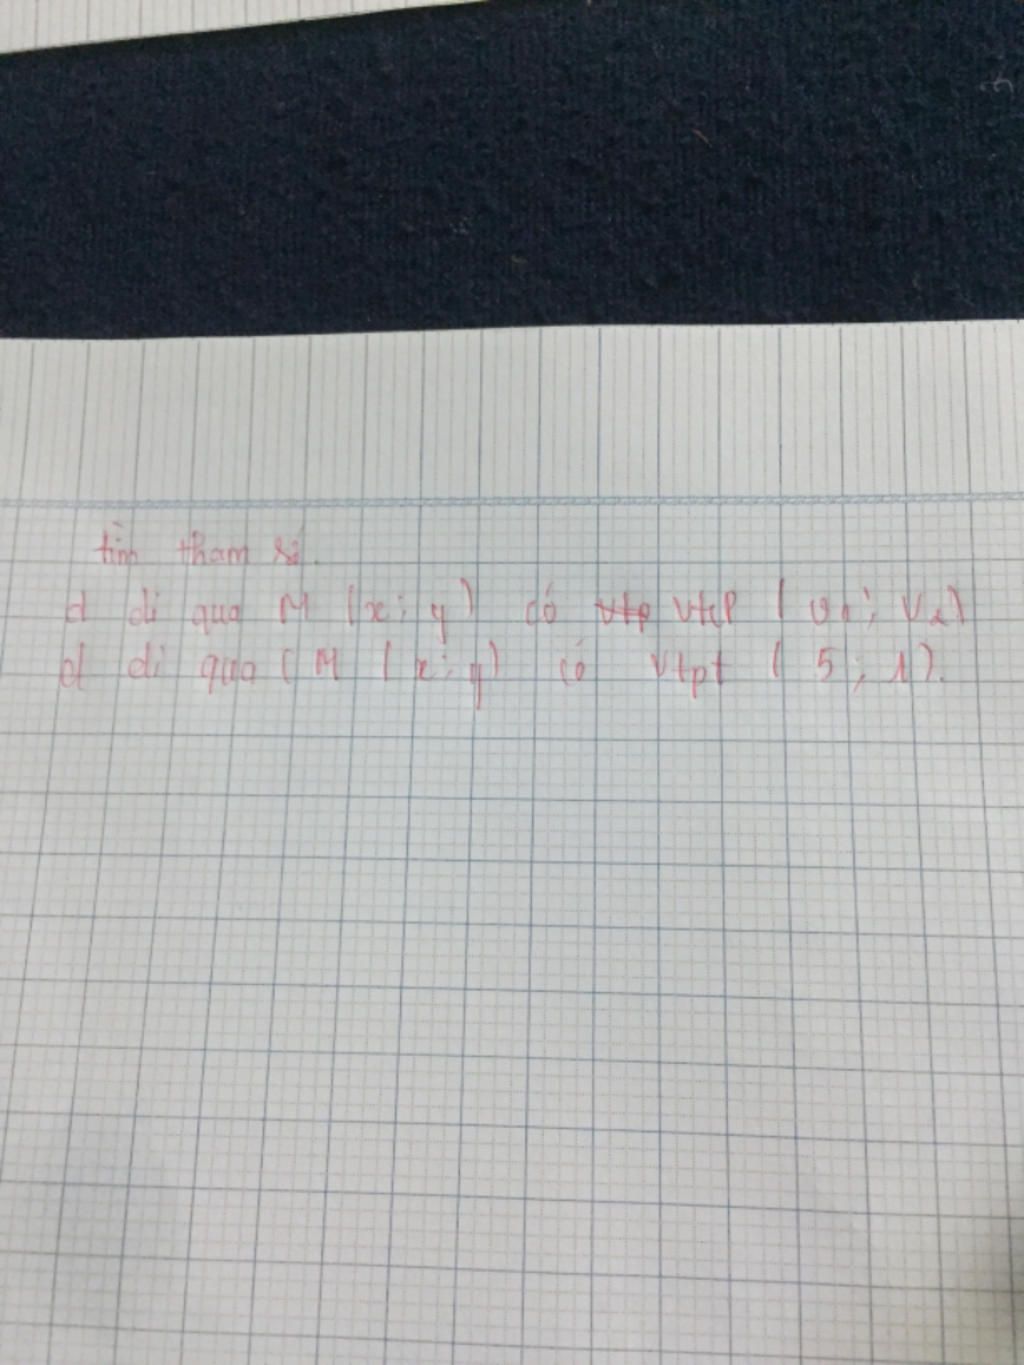 tìm tham số.
d đi qua M (x; y) có vtp vtcp (v1; v2)
d đi qua (M (x; y) có vtpt (5; 1).